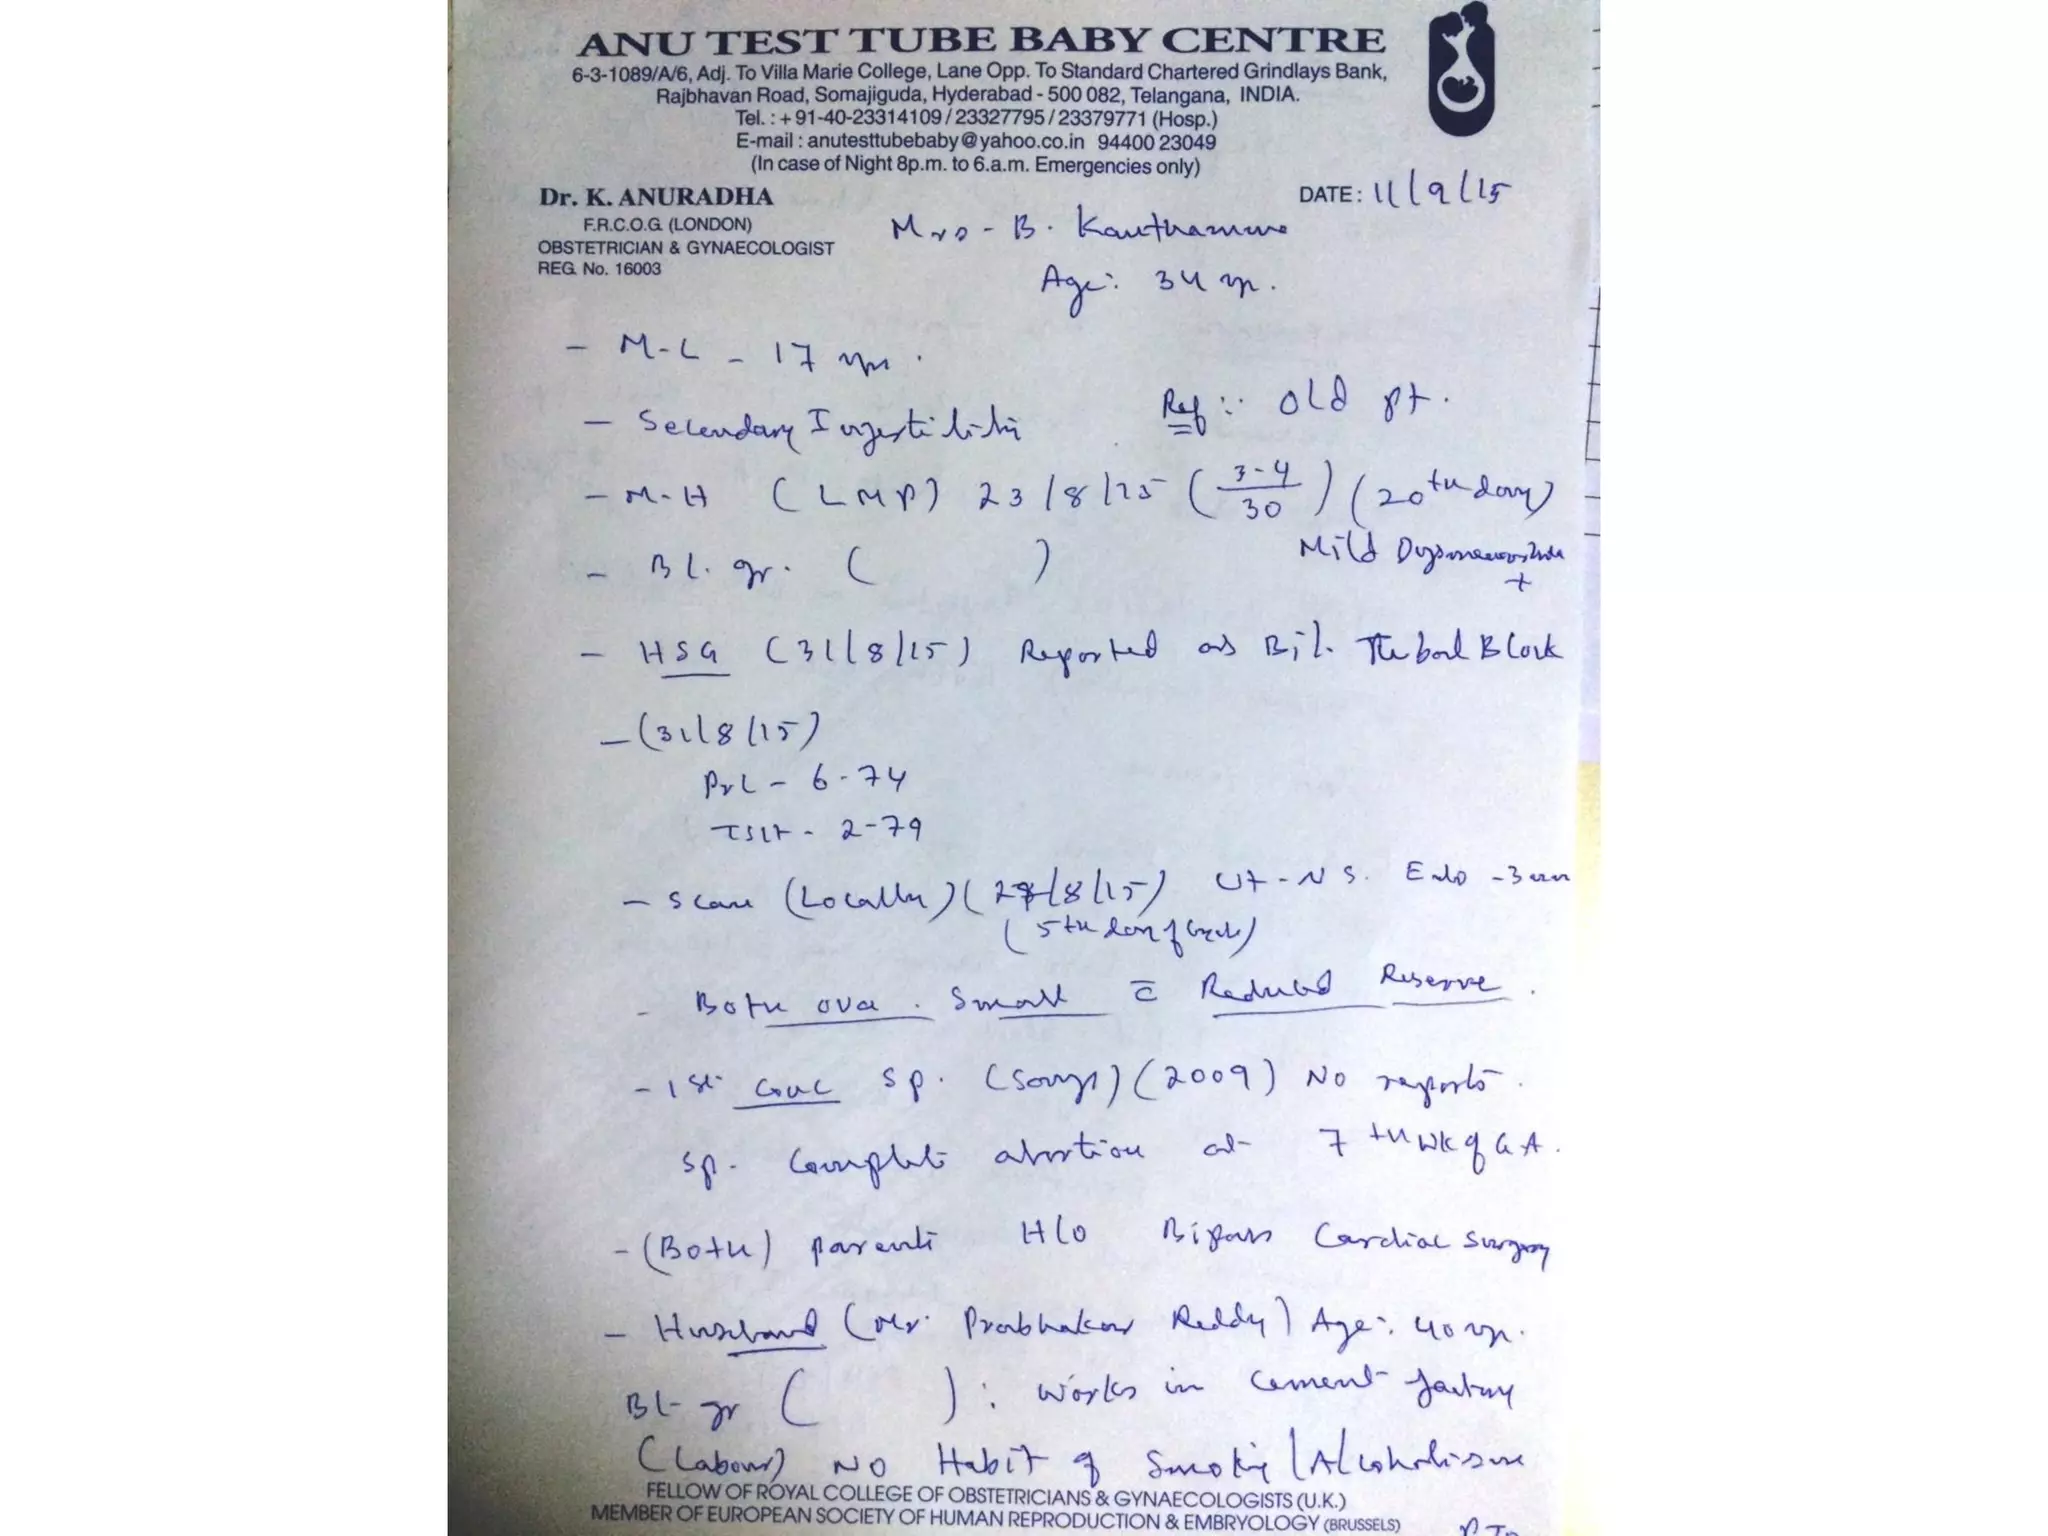 ANU TEST TUBE BABY CENTRE
6-3-1089/A/6, Adj. To Villa Marie College, Lane Opp. To Standard Chartered Grindlays Bank,
Rajbhavan Road, Somajiguda, Hyderabad - 500 082, Telangana, INDIA.
Tel. : + 91-40-23314109 / 23327795 / 23379771 (Hosp.)
E-mail : anutesttubebaby@yahoo.co.in 94400 23049
(In case of Night 8p.m. to 6.a.m. Emergencies only)
Dr. K. ANURADHA
DATE: 11/9/15
F.R.C.O.G. (LONDON)
Mrs - B. Kanthamma
OBSTETRICIAN & GYNAECOLOGIST
REG. No. 16003
Age: 34 yr.
- M-L - 17 yrs.
- Secondary Infertility Ref :: Old pt.
- M-H (LMP) 23/8/15 (3-4/30) (20th day)
- Bl. gr. ( ) Mild Dysmenorrhea +
- HSG (31/8/15) Reported as Bil. Tubal Block
- (31/8/15)
PrL - 6.74
TSH - 2.79
- Scan (Locally) (27/8/15) Ut - NS. Endo - 3mm
(5th day of cycle)
- Both ova. Small c̄ Reduced Reserve.
- 1st Conc Sp. (2009) No reports.
Sp. Complete abortion at 7th wk of GA.
- (Both) parents H/o Bipass Cardiac Surgery
- Husband (Mr. Prabhakar Reddy) Age: 40 yr.
Bl- gr ( ) : works in cement factory
(Labour) NO Habit of Smoking / Alcoholism
FELLOW OF ROYAL COLLEGE OF OBSTETRICIANS & GYNAECOLOGISTS (U.K.)
MEMBER OF EUROPEAN SOCIETY OF HUMAN REPRODUCTION & EMBRYOLOGY (BRUSSELS)